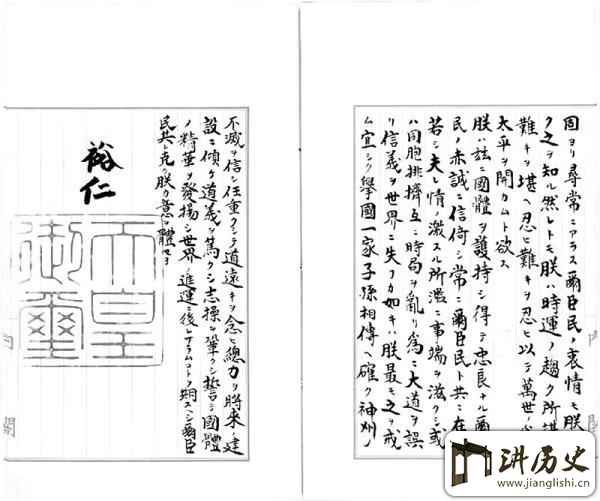 固ヨリ尋常ニアラス爾臣民ノ衷情モ朕
ク之ヲ知ル然レトモ朕ハ時運ノ趨ク所堪
難キヲ堪ヘ忍ヒ難キヲ忍ヒ以テ萬世ノ
太平ヲ開カムト欲ス
朕ハ茲ニ國體ヲ護持シ得テ忠良ナル爾
民ノ赤誠ニ信倚シ常ニ爾臣民ト共ニ在
若シ夫レ情ノ激スル所濫ニ事端ヲ滋クシ或
ハ同胞排擠互ニ時局ヲ亂リ爲ニ大道ヲ誤
リ信義ヲ世界ニ失フカ如キハ朕最モ之ヲ戒
ム宜シク擧國一家子孫相傳ヘ確ク神州ノ
不滅ヲ信シ任重クシテ道遠キヲ念ヒ總力ヲ將來ノ建
設ニ傾ケ道義ヲ篤クシ志操ヲ鞏クシ誓テ國體
ノ精華ヲ發揚シ世界ノ進運ニ後レサラムコトヲ期スヘシ爾臣
民其レ克ク朕カ意ヲ體セヨ
裕仁
天皇
御璽
讲历史
www.jianglishi.cn